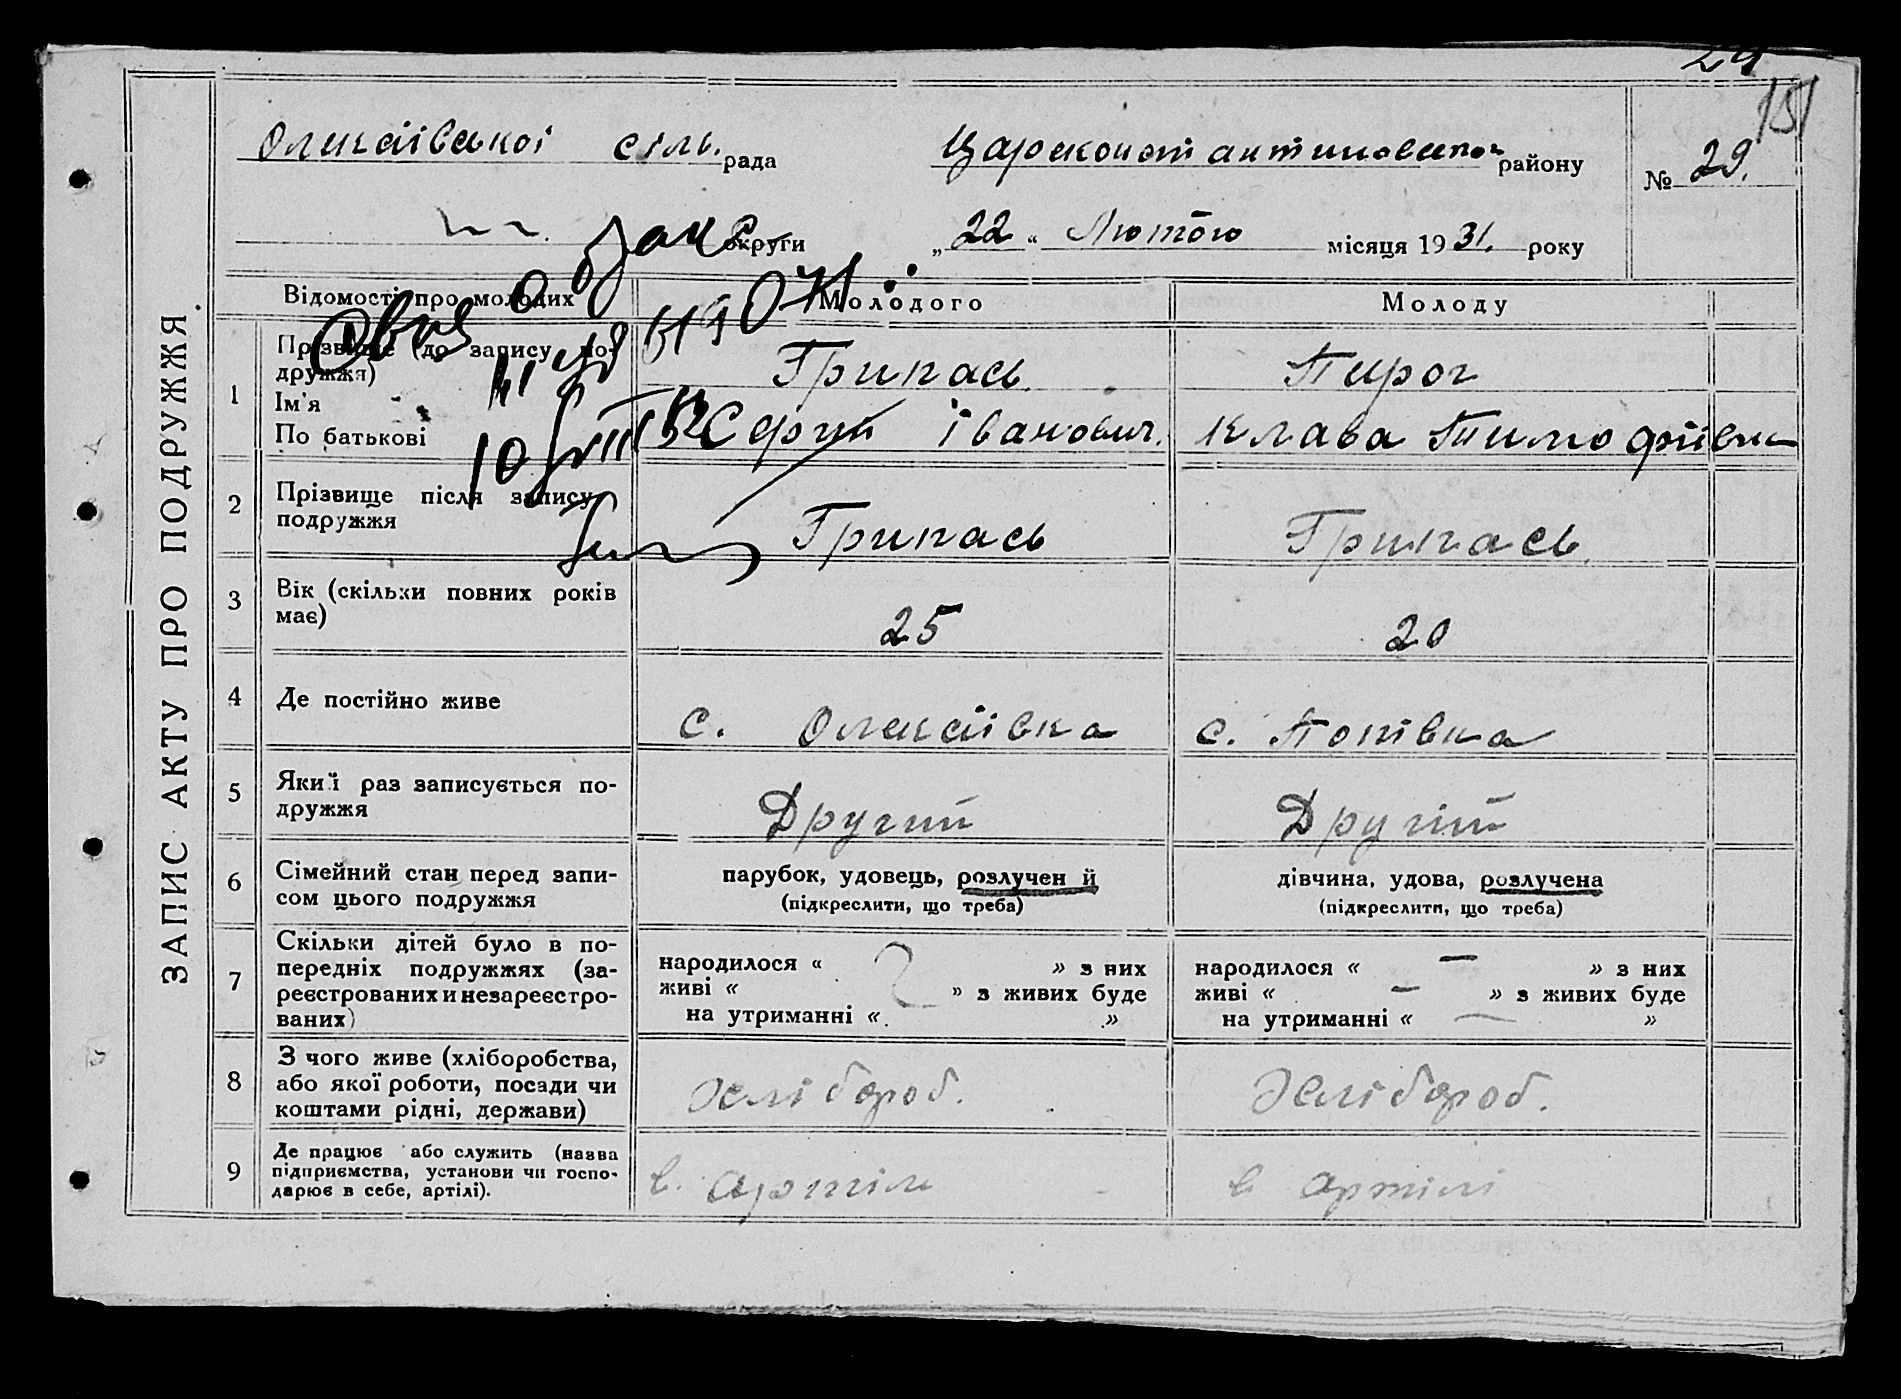 24
151
Олексіівськоі сіль. рада
Царекопстантиновського району
№ 29.
округи
„ 22 “ Лютого місяця 19 31. року
ЗАПИС АКТУ ПРО ПОДРУЖЖЯ.
Відомості про молодих Молодого Молоду
1 Прізвище (до запису по-
дружжя)
Ім'я
По батькові
Грипась Пирог
Сергій Іванович. Клава Тимофіівна
2 Прізвище після запису
подружжя
Грипась Грипась.
3 Вік (скільки повних років
має)
25 20
4 Де постійно живе
с. Олексіівка с. Попівка
5 Який раз записується по-
дружжя
Другий Другий
6 Сімейний стан перед запи-
сом цього подружжя
парубок, удовець, розлучений
(підкреслити, що треба)
дівчина, удова, розлучена
(підкреслити, що треба)
7 Скільки дітей було в по-
передніх подружжях (за-
реєстрованих и незареєстро-
ваних)
народилося « 2 » з них
живі « » з живих буде
на утриманні « »
народилося « — » з них
живі « — » з живих буде
на утриманні « — »
8 З чого живе (хліборобства,
або якої роботи, посади чи
коштами рідні, держави)
Хлібороб. Хлібороб.
9 Де працює або служить (назва
підприємства, установи чи госпо-
дарює в себе, артілі).
в. артіли в артілі